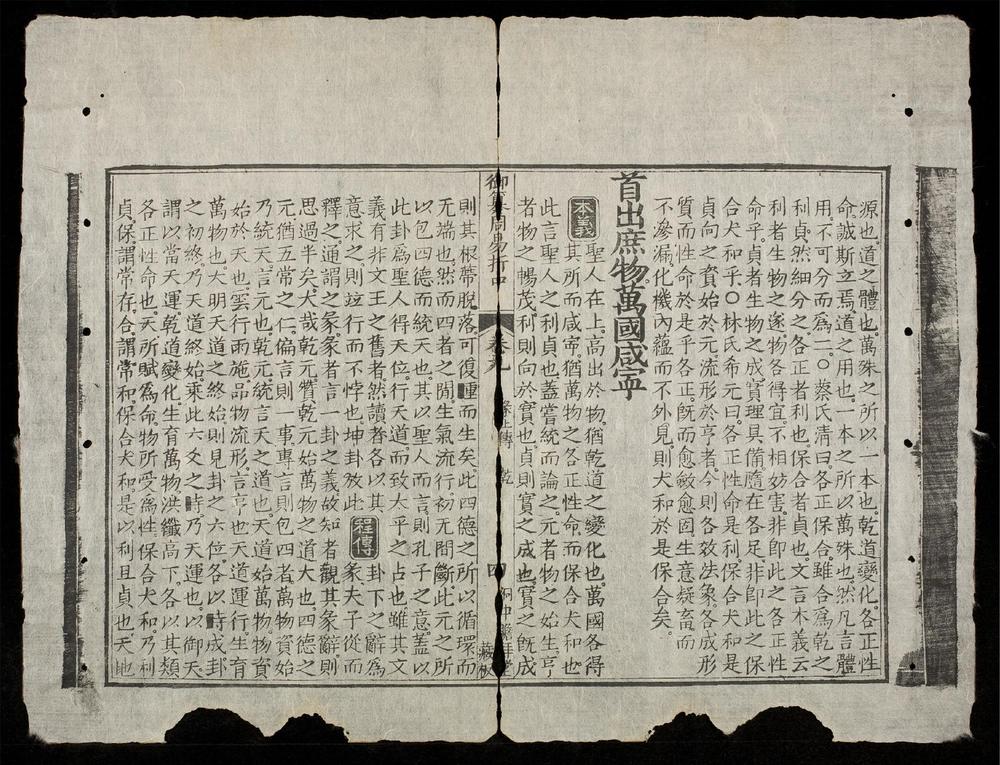 源也。道之體也。萬殊之所以一本也。乾道變化。各正性
命。誠斯立焉。道之用也。一本之所以萬殊也。然凡言體
用。不可分而爲二。○蔡氏清曰。各正保合。雖合爲乾之
利貞。然細分之。各正者利也。保合者貞也。文言本義云
利者生物之遂。物各得宜。不相妨害。非卽此之各正性
命乎。貞者生物之成。實理具備。隨在各足。非卽此之保
合太和乎。○林氏希元曰。各正性命是利。保合太和是
貞。向之資始於元。流形於亨者。今則各效法象。各成形
質。而性命於是乎各正。旣而愈斂愈固。生意凝畜而
不滲漏。化機內蘊而不外見。則太和於是保合矣。
首出庶物。萬國咸寧
本義 聖人在上。高出於物。猶乾道之變化也。萬國各得
其所而咸寧。猶萬物之各正性命而保合太和也
此言聖人之利貞也。蓋嘗統而論之。元者物之始生。亨
者物之暢茂。利則向於實也。貞則實之成也。實之旣成
御纂周易折中 卷九 彖上傳 乾 四
則其根蒂脫落。可復種而生矣。此四德之所以循環而
无端也。然而四者之閒。生氣流行。初无閒斷。此元之所
以包四德而統天也。其以聖人而言。則孔子之意。蓋以
此卦爲聖人得天位。行天道。而致太平之占也。雖其文
義有非文王之舊者。然讀者各以其
意求之。則竝行而不悖也。坤卦放此
程傳 卦下之辭爲
彖。夫子從而
釋之。通謂之彖。彖者言一卦之義。故知者觀其彖辭則
思過半矣。大哉乾元。贊乾元始萬物之道大也。四德之
元。猶五常之仁。偏言則一事。專言則包四者。萬物資始
乃統天。言元也。乾元統言天之道也。天道始萬物。物資
始於天也。雲行雨施。品物流形。言亨也。天道運行。生育
萬物也。大明天道之終始。則見卦之六位。各以時成。卦
之初終。乃天道終始。乘此六爻之時。乃天運也。以御天
謂以當天運。乾道變化。生育萬物。洪纖高下。各以其類
各正性命也。天所賦爲命。物所受爲性。保合太和。乃利
貞。保謂常存。合謂常和。保合太和。是以利且貞也。天地